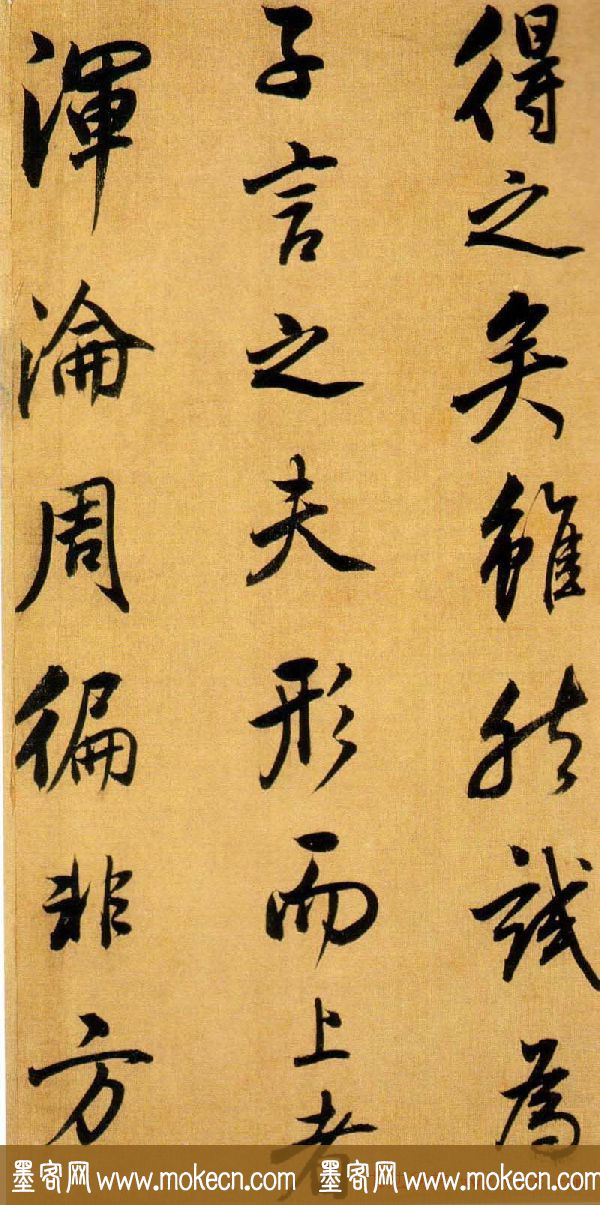 得之矣雖然試為
子言之夫形而上者
渾淪周徧非方
墨客网 www.mokecn.com 墨客网 www.mokecn.com